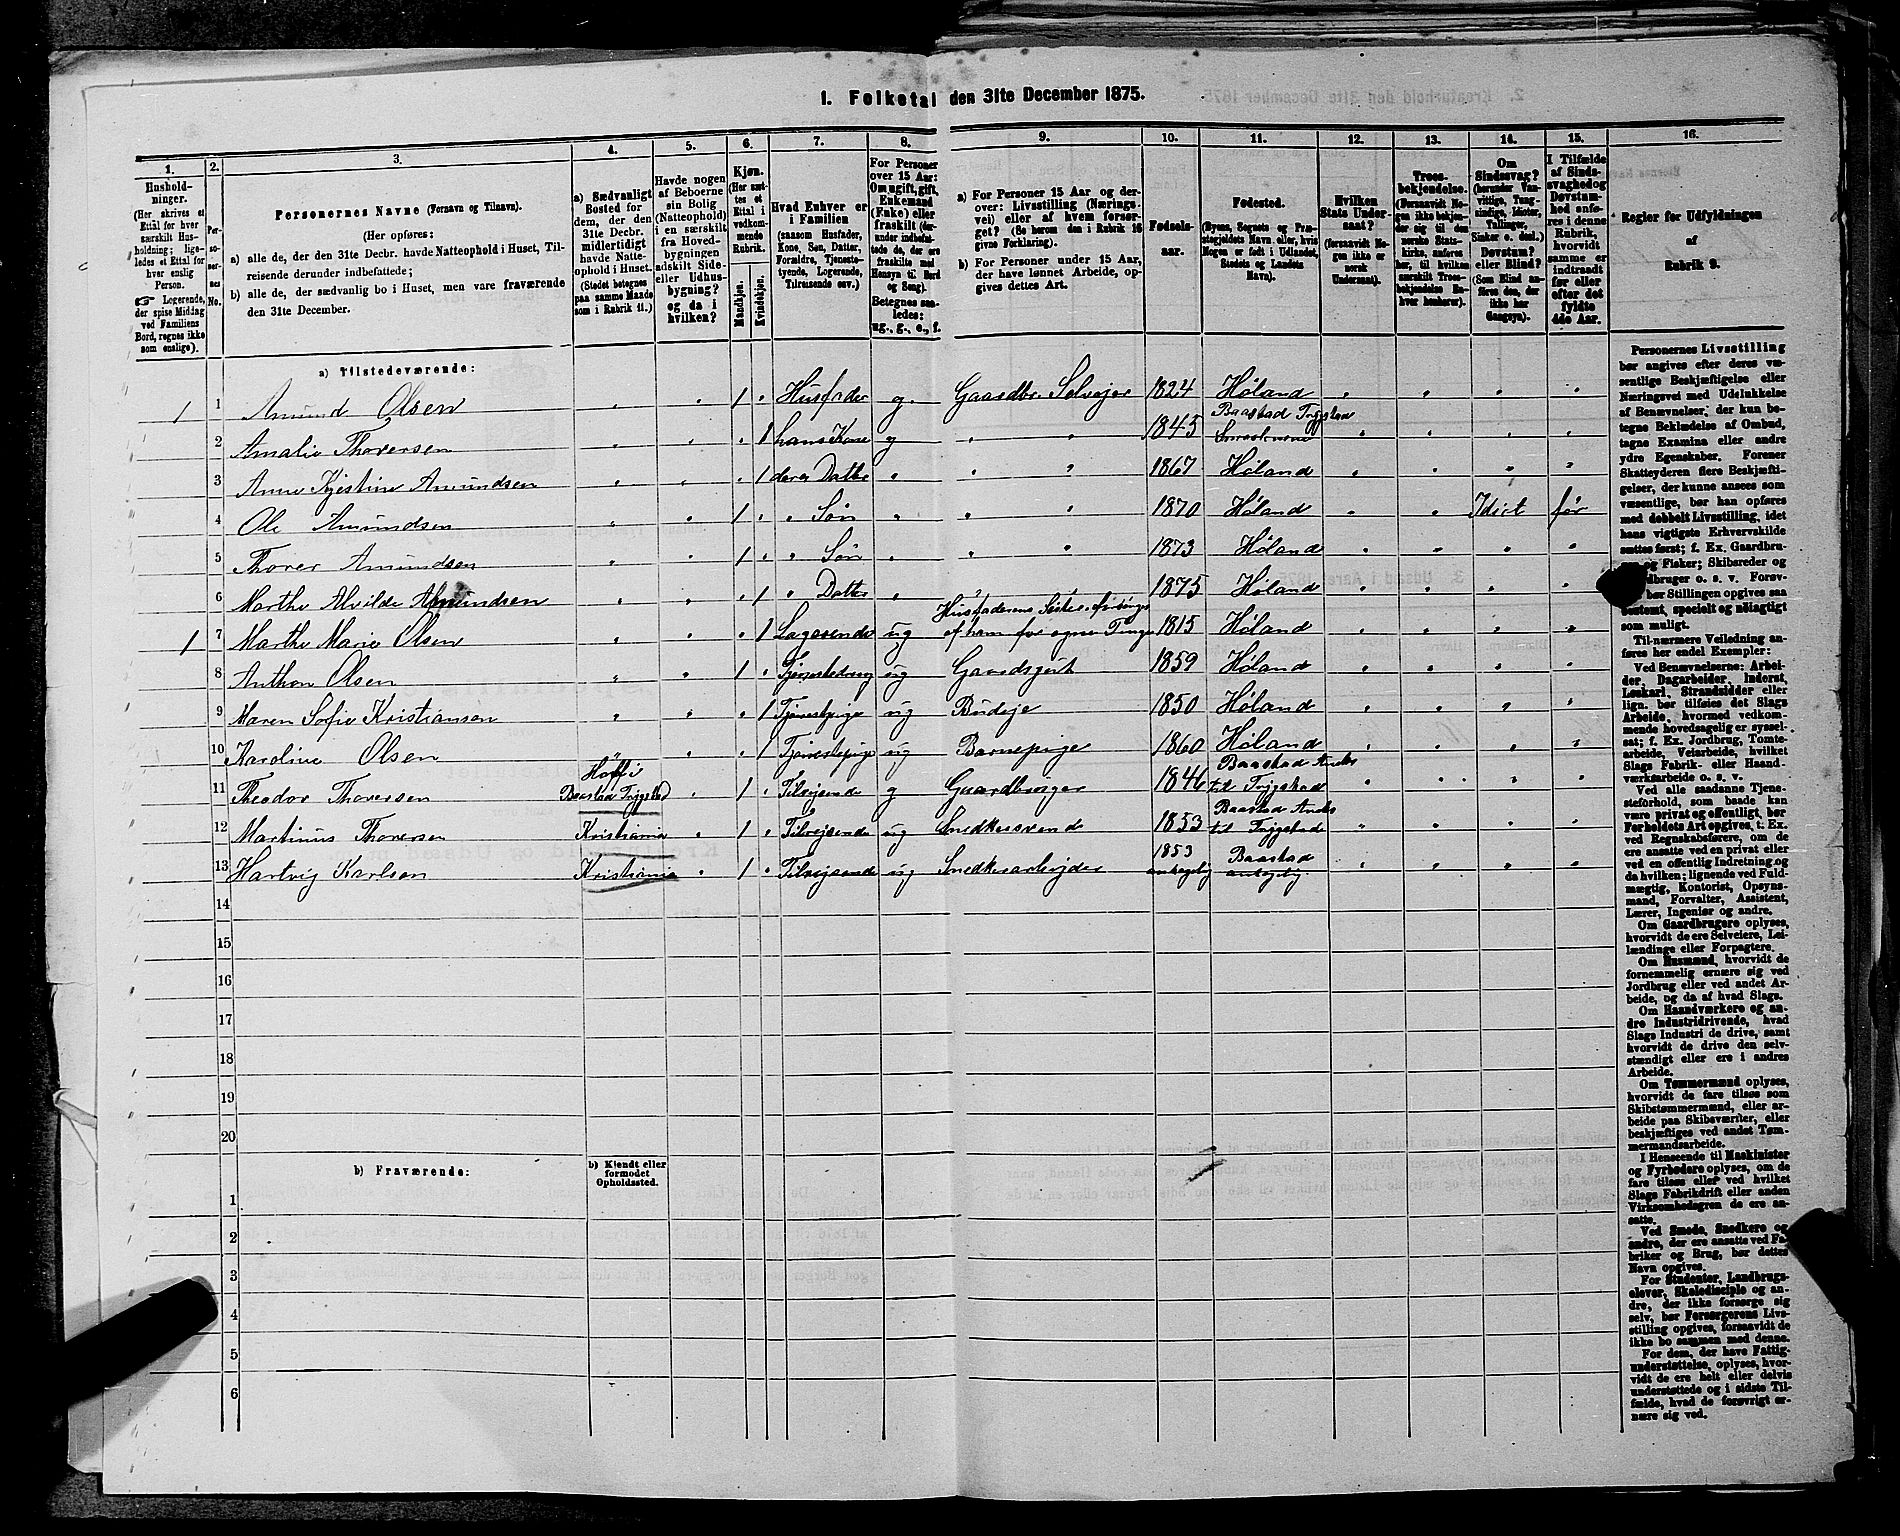 1. Folketal den 31te December 1875.
1. 2. 3. 4. 5. 6. 7. 8. 9. 10. 11. 12. 13. 14. 15. 16.
Hushold-
ninger.
(Her skrives et
Ettal for hver
særskilt Hus-
holdning; lige-
ledes et Ettal for
hver enslig
Person.
Logerende,
der spise Middag
ved Familiens
Bord, regnes ikke
som enslige).
Per-
so-
ner-
nes
No.
Personernes Navne (Fornavn og Tilnavn).
(Her opføres:
a) alle de, der den 31te Decbr. havde Natteophold i Huset, Til-
reisende derunder indbefattede;
b) alle de, der sædvanlig bo i Huset, men vare fraværende
den 31te December.
a) Sædvanligt
Bosted for
dem, der den
31te Decbr.
midlertidigt
havde Natte-
ophold i Huset.
(Stedet betegnes
paa samme Maade
som i Rubrik 11.)
Havde nogen
af Beboerne
sin Bolig
(Natteophold)
i en særskilt
fra Hoved-
bygningen
adskilt Side-
eller Udhus-
bygning?
og da i
hvilken?
Kjøn.
(Her sæt-
tes et
Ettal i
vedkom-
mende
Rubrik.
Mandkjøn.
Kvindekjøn.
Hvad Enhver er
i Familien
(saasom Husfader,
Kone, Søn, Datter,
Forældre, Tjeneste-
tyende, Logerende,
Tilreisende osv.)
For Personer
over 15 Aar:
Om ugift, gift,
Enkemand
(Enke) eller
fraskilt (der-
under indbefat-
tede de, der ere
fraskilte med
Hensyn til Bord
og Seng).
Betegnes saa-
ledes:
ug., g., e., f.
a) For Personer 15 Aar og der-
over: Livsstilling (Nærings-
vei) eller af hvem forsør-
get? (Se herom den i Rubrik 16
givne Forklaring).
b) For Personer under 15 Aar,
der have lønnet Arbeide, op-
gives dettes Art.
Fødsels-
aar.
Fødested.
(Byens, Sognets og Præ-
stegjeldets Navn, eller, hvis
Nogen er født i Udlandet,
Stedets og Landets
Navn).
Hvilken
Stats Under-
saat?
(forsaavidt No-
gen ikke er
norsk
Undersaat).
Troes-
bekjendelse.
(Forsaavidt No-
gen ikke bekjen-
der sig til den
norske Stats-
kirke, anføres
her, til hvilken
særskilt Troes-
bekjendelse En-
hver henhører).
Om
Sindssvag?
(herunder Van-
vittige, Tung-
sindige, Idioter,
Tullinger,
Sinker o. desl.)
Døvstum?
eller Blind?
(Som Blind an-
føres den, der
ikke har
Gangsyn).
I Tilfælde
af Sinds-
svaghed og
Døvstum-
hed anfø-
res i denne
Rubrik,
hvorvidt
samme er
indtraadt
før eller
efter det
fyldte
4de Aar.
Regler for Udfyldningen
af
Rubrik 9.
a) Tilstedeværende:
1 1 Amund Olsen " " 1 " Husfader g. Gaardbr. Selvejer 1824 Høland " " " "
2 Amalie Thoresen " " " 1 hans Kone g " " 1845 Baastad Trygstad " " " "
3 Anne Kjestine Amundsen " " " 1 deres Datter " " " 1867 Høland " " " "
4 Ole Amundsen " " 1 " " Søn " " " 1870 Høland " " Idiot før
5 Thorer Amundsen " " 1 " " Søn " " " 1873 Høland " " " "
6 Marthe Alvilde Amundsen " " " 1 " Datter " " " 1875 Høland " " " "
1 7 Marthe Marie Olsen " " " 1 Logerende ug Husfaderens Søster
af ham for egne Penge 1815 Høland " " " "
8 Anthon Olsen " " 1 " Tjenestedreng ug Gaardsgut 1859 Høland " " " "
9 Maren Sofie Kristiansen " " " 1 Tjenestepige ug Budeje 1850 Høland " " " "
10 Karoline Olsen " " " 1 Tjenestepige ug Barnepige 1860 Høland " " " "
11 Theodor Thoresen Baastad Trygstad " 1 " Tilrejsende g Gaardbruger 1846 Baastad Anex
til Trygstad " " " "
12 Martinus Thoresen Kristiania " 1 " Tilrejsende ug Snedkersvend 1853 Baastad Anex
til Trygstad " " " "
13 Hartvig Karlsen Kristiania " 1 " Tilrejsende ug Snedkerarbejder 1853
antagelig Baastad
antagelig " " " "
14
15
16
17
18
19
20
b) Fraværende:
b) Kjendt eller
formodet
Opholdssted.
1
2
3
4
5
6
Personernes Livsstilling
bør angives efter deres væ-
sentlige Beskjæftigelse eller
Næringsvei med Udelukkelse
af Benævnelser, der kun be-
tegne Beklædelse af Ombud,
tagne Examina eller andre
ydre Egenskaber. Forener
Skatteyderen flere Beskjæfti-
gelser, der kunne ansees som
væsentlige, bør han opføres
med dobbelt Livsstilling, idet
hans vigtigste Erhvervskilde
sættes først; f. Ex. Gaardbru-
og Fisker; Skibsreder og
dbruger o. s. v. Forøv-
bør Stillingen opgives saa
bestemt, specielt og nøiagtigt
som muligt.
Til nærmere Veiledning an-
føres her endel Exempler:
Ved Benævnelserne: Arbei-
der, Dagarbeider, Inderst,
Løskarl, Strandsidder eller
lign. bør tilføies det Slags
Arbeide, hvormed vedkom-
mende hovedsagelig er syssel-
sat; f. Ex. Jordbrug, Tomte-
arbeide, Veiarbeide, hvilket
Slags Fabrik- eller Haand-
værksarbeide o. s. v.
Ved alle saadanne Tjene-
steforhold, som baade kan
være privat og offentlig, bør
Forholdets Art opgives, f. Ex.
ved Regnskabsførere, om de
ere ansatte ved en privat eller
ved en offentlig Indretning og
da hvilken; lignende ved Fuld-
mægtig, Kontorist, Opsyns-
mand, Forvalter, Assistent,
Lærer, Ingeniør og andre.
Om Gaardbrugere oplyses,
hvorvidt de ere Selveiere, Lei-
lændinge eller Forpagtere.
Om Husmænd, hvorvidt de
fornemmelig ernære sig ved
Jordbrug eller ved andet Ar-
beide, og da af hvad Slags.
Om Haandværkere og an-
dre Industridrivende, hvad
Slags Industri de drive, samt
hvorvidt de drive den selv-
stændigt eller ere i andres
Arbeide.
Om Tømmermænd oplyses,
hvorvidt de fare tilsøs som
Skibstømmermænd, eller ar-
beide paa Skibsværfter, eller
beskjæftiges ved andet Tøm-
mermandsarbeide.
I Henseende til Maskinister
og Fyrbødere oplyses, om de
fare tilsøs eller ved hvilket
Slags Fabrikdrift eller anden
Virksomhedsgren de ere an-
satte.
Ved Smede, Snedkere og
andre, der ere ansatte ved Fa-
briker og Brug, bør dettes
Navn opgives.
For Studenter, Landbrugs-
elever, Skoledisciple og an-
dre, der ikke forsørge sig
selv, bør Forsørgerens Livs-
stilling opgives, forsaavidt de
ikke bo sammen med denne.
For dem, der have Fattig-
understøttelse, oplyses, hvor-
vidt de ere helt eller delvis
understøttede og i sidste Til-
fælde, hvad de forøvrigt er-
nære sig ved.